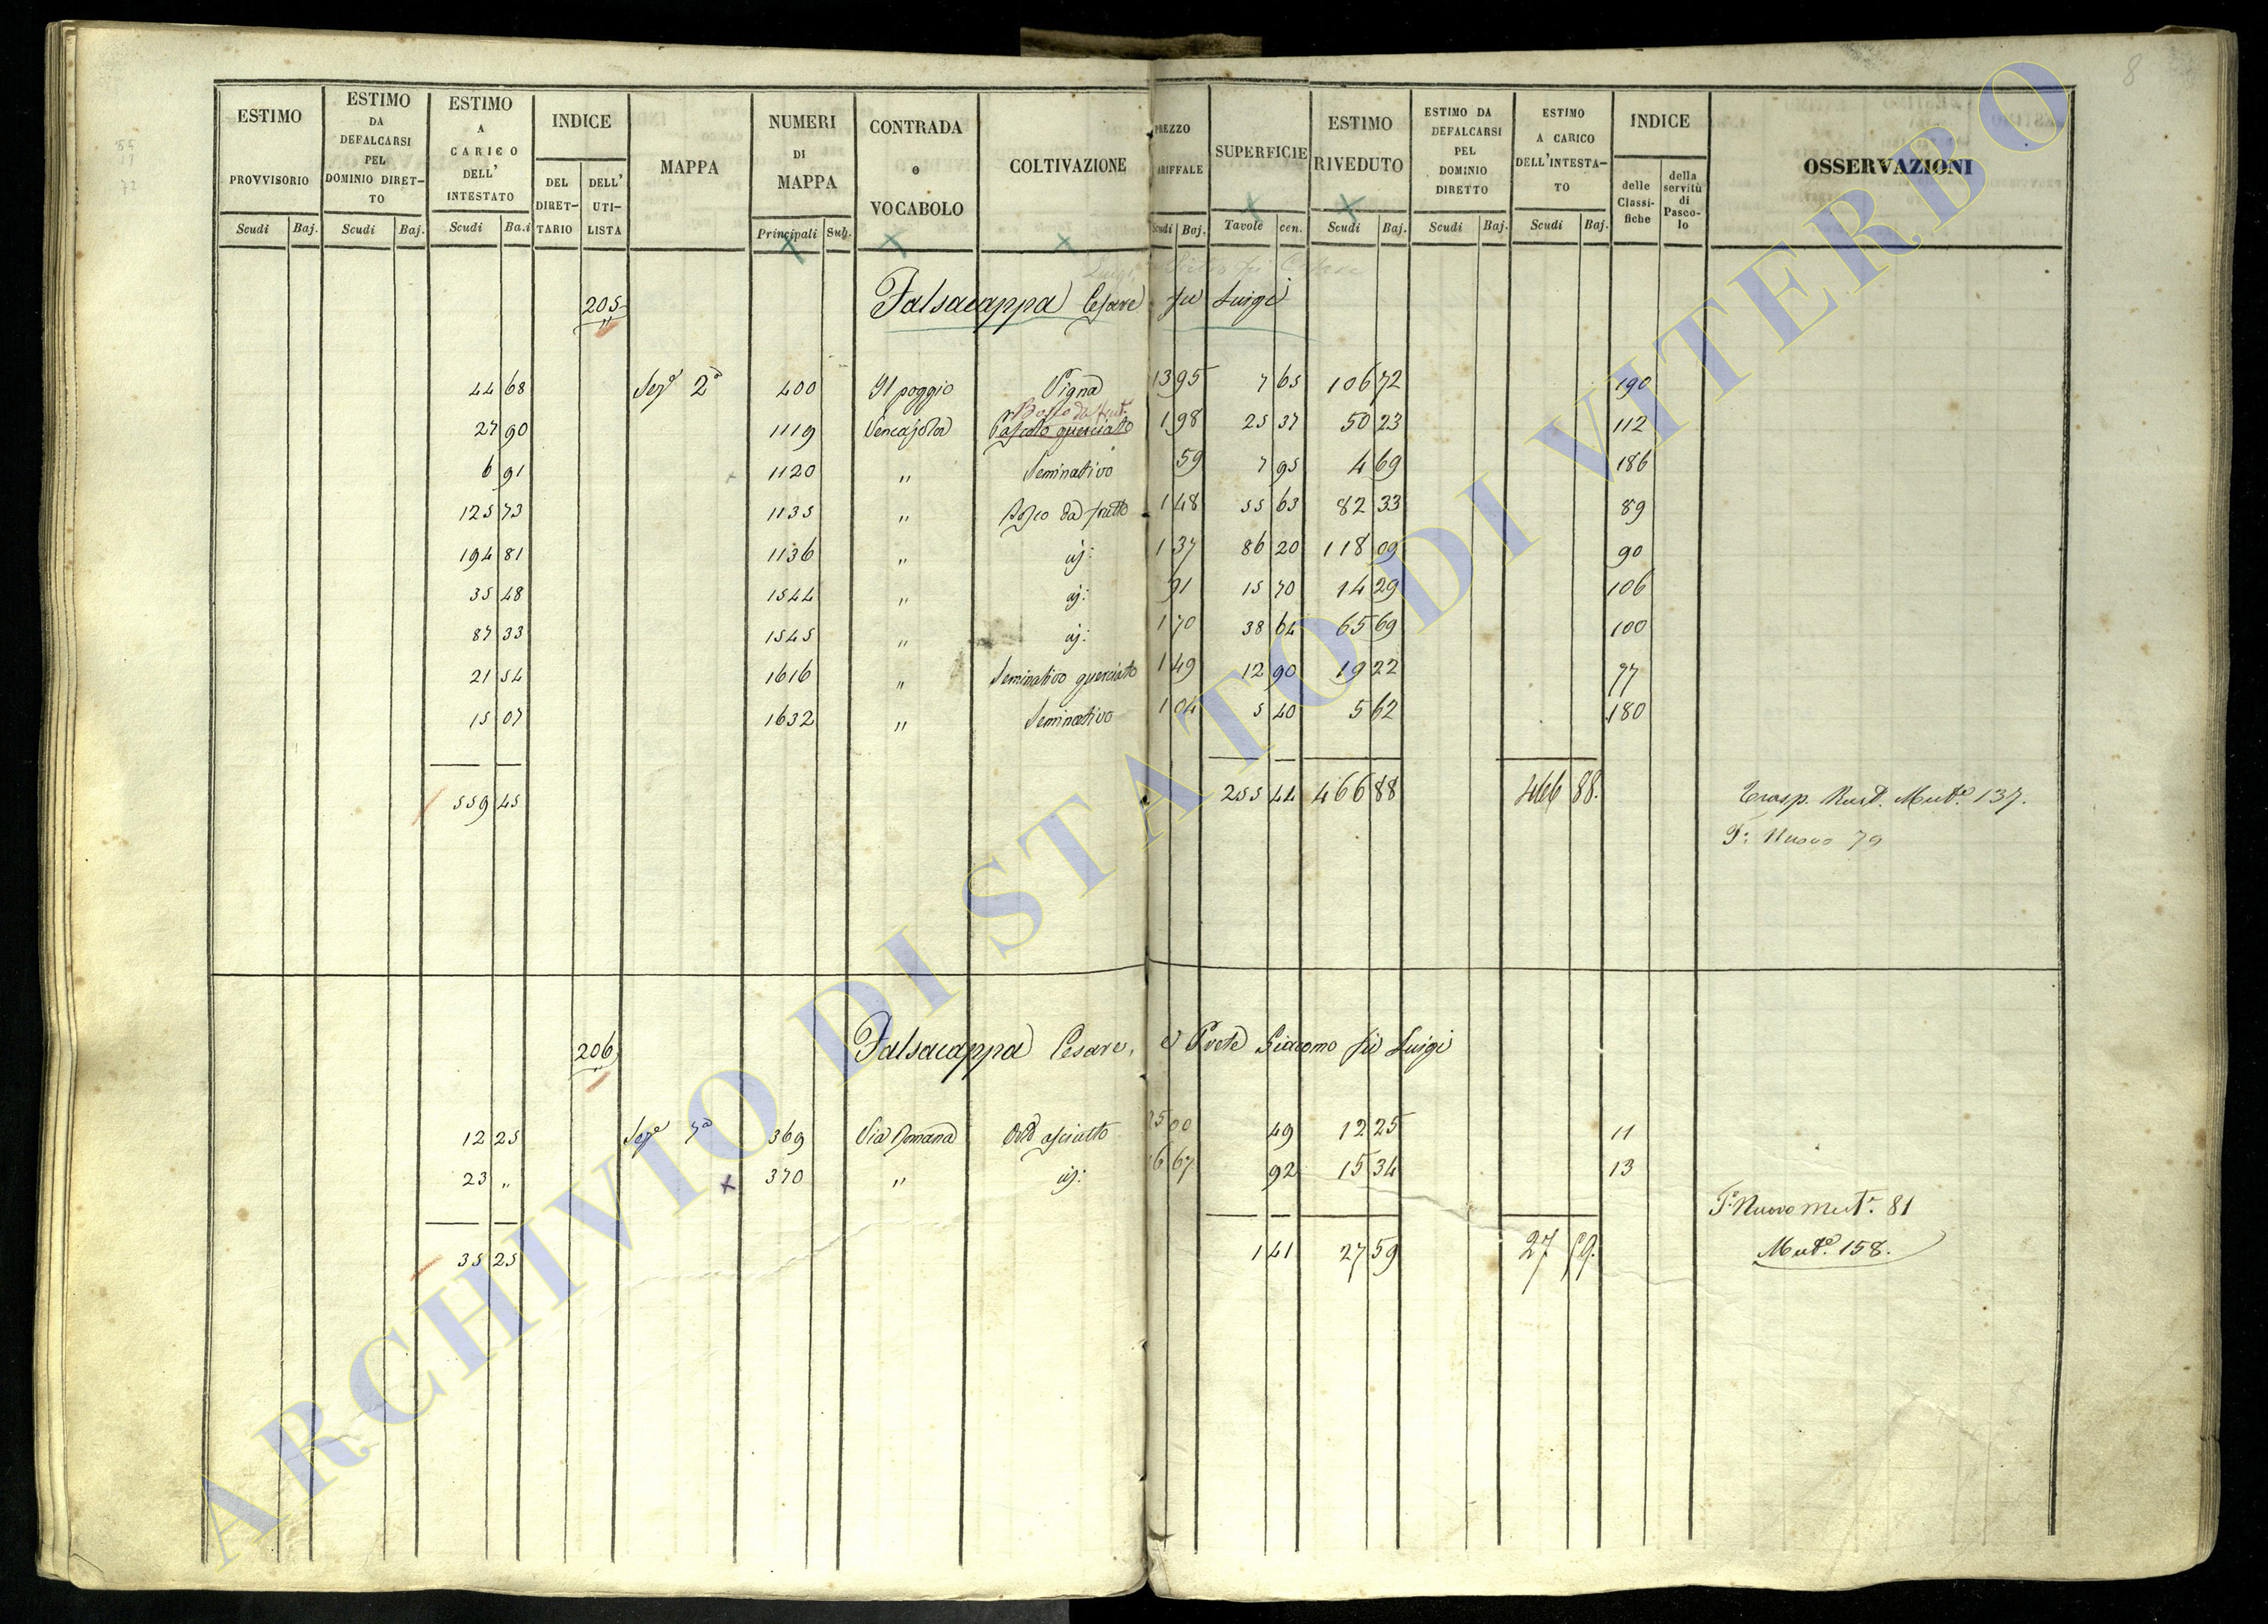 8
ESTIMO PROVVISORIO
ESTIMO DA DEFALCARSI PEL DOMINIO DIRET-TO
ESTIMO A CARICO DELL' INTESTATO
INDICE
DEL DIRET-TARIO
DELL' UTI-LISTA
MAPPA
NUMERI DI MAPPA
CONTRADA o VOCABOLO
COLTIVAZIONE
PREZZO TARIFFALE
SUPERFICIE
ESTIMO RIVEDUTO
ESTIMO DA DEFALCARSI PEL DOMINIO DIRETTO
ESTIMO A CARICO DELL'INTESTA-TO
INDICE
delle Classi-fiche
della servitù di Pasco-lo
OSSERVAZIONI
Scudi Baj. Scudi Baj. Scudi Ba.i Principali Sub. Scudi Baj. Tavole cen. Scudi Baj. Scudi Baj. Scudi Baj.
205 Falsacappa Cesare fu Luigi
44 68 Sez.e 2a 400 Il poggio Vigna 13 95 7 65 106 72 190
Bosco da frut.
27 90 1119 Vencajola Pascolo querciato 1 98 25 37 50 23 112
6 91 1120 " Seminativo 59 7 95 4 69 186
125 73 1135 " Bosco da frutto 1 48 55 63 82 33 89
194 81 1136 " id: 1 37 86 20 118 09 90
35 48 1544 " id: 91 15 70 14 29 106
87 33 1545 " id: 1 70 38 64 65 69 100
21 54 1616 " Seminativo querciato 1 49 12 90 19 22 77
15 07 1632 " Seminativo 1 04 5 40 5 62 180
559 45 255 44 466 88 466 88. Trasp. Rust. Mut.e 137.
T: Nuovo 79
206 Falsacappa Cesare, e Prete Giacomo fu Luigi
12 25 Sez.e 7a 369 Via Romana Orto asciutto 25 00 49 12 25 11
23 " 370 " id: 16 67 92 15 34 13
T.o Nuovo Mut.e 81
35 25 1 41 27 59 27 59. Mut.e 158.
ARCHIVIO DI STATO DI VITERBO